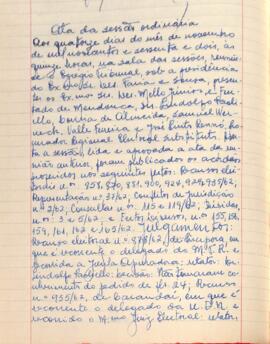 Ata da sessão ordinária
Aos quatorze dias do mês de novembro
de mil novecentos e sessenta e dois, às
quinze horas, na sala das sessões, reuniu-
se o Egrégio Tribunal, sob a presidência
do Ex.mo Sr. Des. Faria e Sousa, presen-
tes os Ex.mos Srs. Des. Mello Júnior e Fur-
tado de Mendonça, Srs. Lindolfo Paoliello,
Cunha de Almeida, Samuel Wer-
neck, Valle Ferreira e José Pinto Renó, Pro-
curador Regional Eleitoral Substituto.
ta a sessão, lida e aprovada a ata da ses-
são anterior, foram publicados os acórdãos
proferidos nos seguintes feitos: Recursos elei-
torais n.os 958, 870, 881, 900, 924, 925, 935/62,
Representação n.º 37/62, Conflitos de jurisdição
n.º 2/62, Consultas n.os 115 e 119/62, Dúvidas
n.os 3 e 5/62, e Feitos diversos, n.os 155, 158,
159, 161, 163 e 165/62. Julgamentos:
Recurso eleitoral n.º 878/62, de
que é recorrente o delegado do M.T.R. e
recorrida a Junta Apuradora; relator: Dr.
Lindolfo Paoliello; decisão: Não tomaram co-
nhecimento do pedido de fls. 24; Recurso
n.º 955/62, de Carandaí, em que é
recorrente o delegado da U.D.N. e
recorrido o M.mo Juiz Eleitoral; relator: